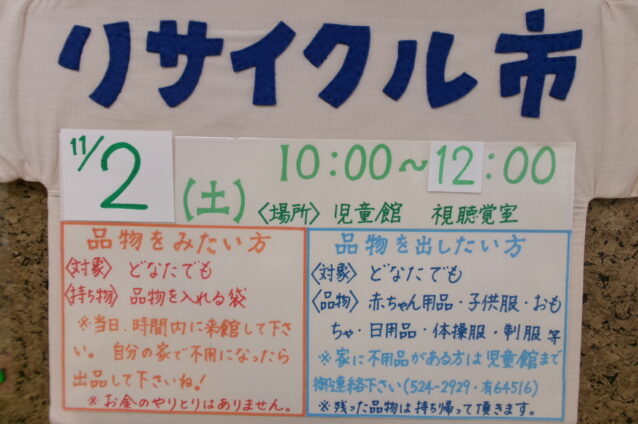 リサイクル市
11/2(土) 10:00~12:00
〈場所〉児童館 視聴覚室
品物をみたい方
〈対象〉どなたでも
〈持ち物〉品物を入れる袋
※当日、時間内に来館して下さ
い。自分の家で不用になったら
出品して下さいね!
※お金のやりとりはありません。
品物を出したい方
〈対象〉どなたでも
〈品物〉赤ちゃん用品・子供服・おも
ちゃ・日用品・体操服・制服 等
※家に不用品がある方は児童館まで
御連絡下さい(524-2929・有64516)
※残った品物は持ち帰って頂きます。